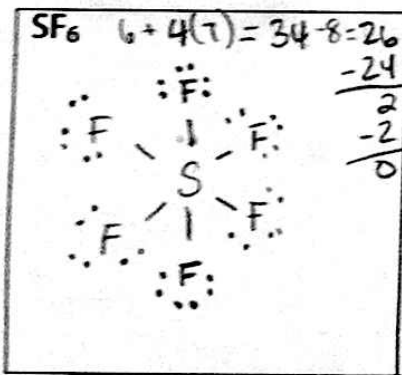 SF₆ 6 + 4(7) = 34 - 8 = 26
- 24
2
- 2
0
F
F F
S
F F
F